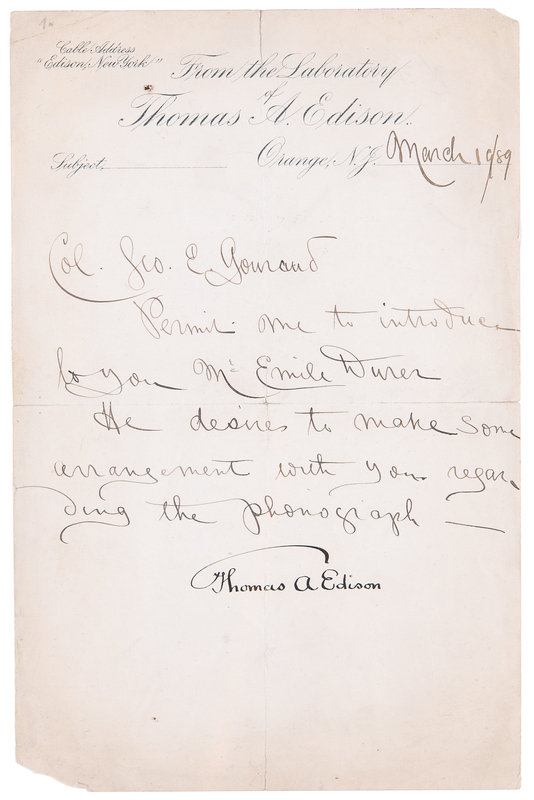 1.
Cable Address
"Edison, New York"
From the Laboratory
of
Thomas A. Edison.
Subject,
Orange, N.J. March 19/89
Col. Geo. E. Gouraud
Permit me to introduce
to you Mr Emile Durer
He desires to make some
arrangement with you regar-
ding the phonograph —
Thomas A Edison